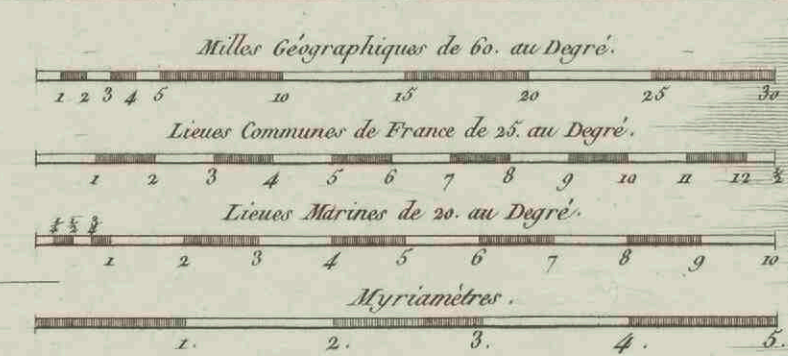 Milles Géographiques de 60. au Degré.
1 2 3 4 5 10 15 20 25 30
Lieues Communes de France de 25. au Degré.
1 2 3 4 5 6 7 8 9 10 11 12 ½
Lieues Marines de 20. au Degré.
¼ ½ ¾
1 2 3 4 5 6 7 8 9 10
Myriamètres.
1. 2. 3. 4. 5.